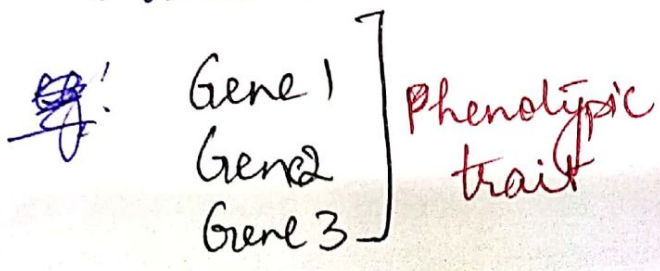 eg:
Gene 1
Gene2
Gene 3
Phenotypic
trait